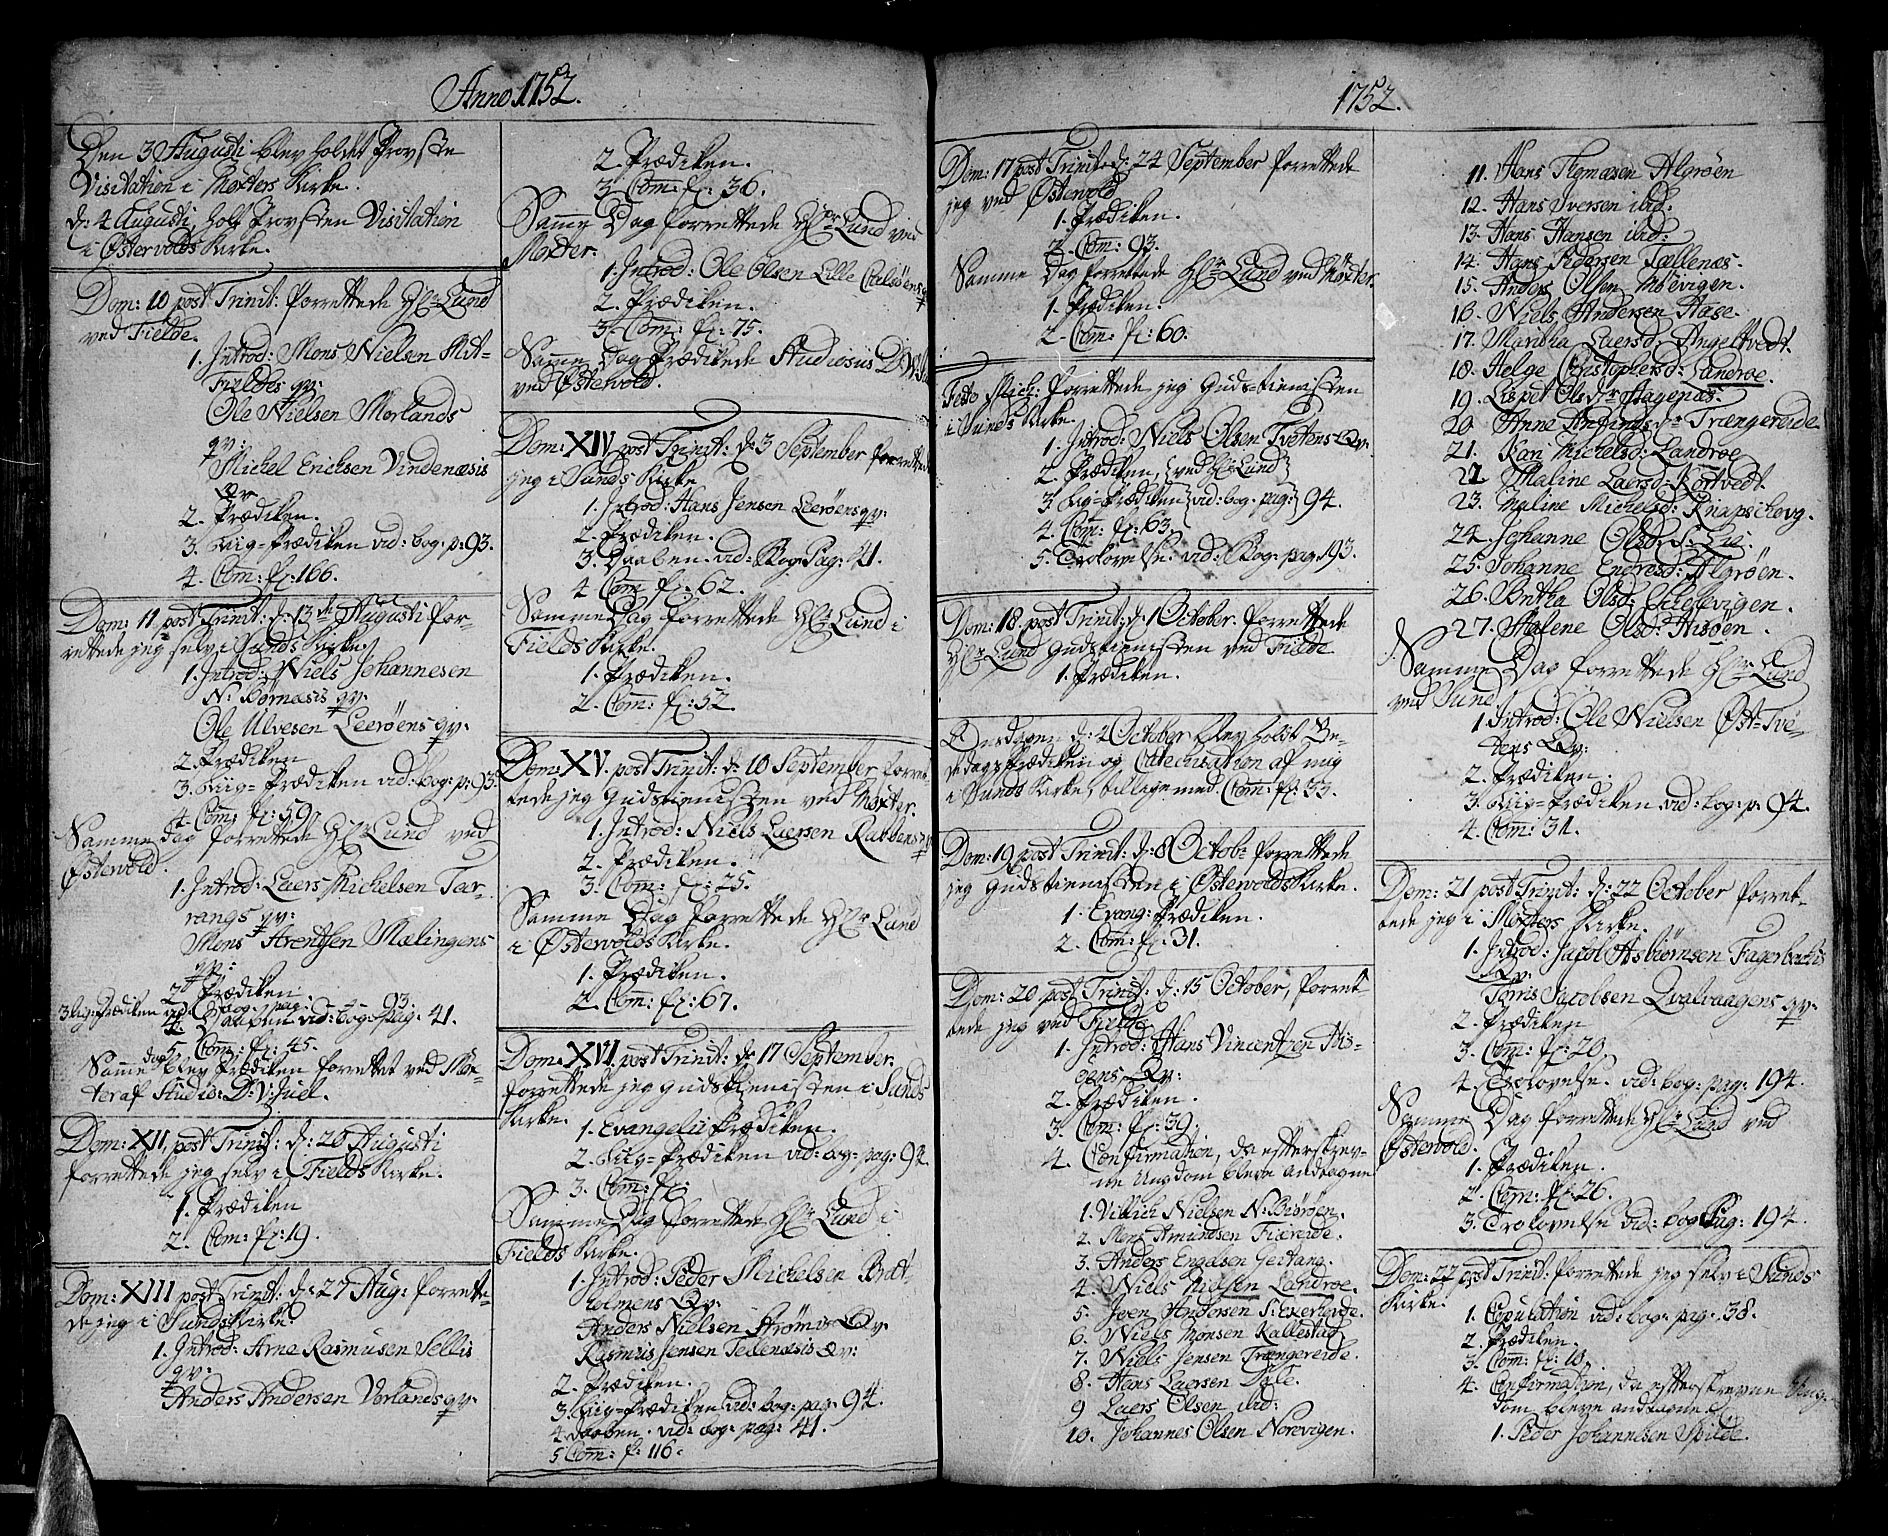 Anno 1752.
Den 3 Augusti blev holdt Provste
Visitation i Møxters Kirke.
d: 4 Augusti, holt Provsten Visitation
i Østervolds Kirke.
Dom: 10 post Trinit: forrettede Hr Lund
ved Fielde.
1. Introd: Mons Nielsen Mit-
Fieldes qv:
Ole Nielsen Morlands
qv:
Michel Erichsen Vindenæsis
Qv:
2. Prædiken.
3. Liig-Prædiken vid: bog: p: 93.
4. Com: fl: 166.
Dom: 11, post Trinit: d: 13de Augusti for-
rettede jeg selv i Sunds Kirke
1. Introd: Niels Johannesen
N: Bornæsis qv:
Ole Ulvesen Leerøens qv:
2. Prædiken
3. Liig-Prædiken vid: bog: p: 93.
4. Com: fl: 59.
Samme dag forrettede Hr Lund ved
Østevold.
1. Introd: Laers Michelsen Tar-
rangs qv:
Mons Arentsen Mælingens
qv:
2. Prædiken.
3 Lig-Prædiken vid: bog: pag: 93.
4. Daaben vid: bog: Pag: 41.
5. Com: fl: 45.
Samme dag blev Prædiken forrettet ved Møx-
ter af Studios: D: V: Juel.
Dom: XII, post Trinit: d: 20 Augusti
forrettede jeg selv i Fields Kirke.
1. Prædiken
2. Com: fl: 19.
Dom: XIII post Trinit: d: 27 Aug: forrette-
de jeg i Sunds Kirke.
1. Introd: Arne Rasmusen Selliis
qv:
Anders Andersen Vorlands qv:
2. Prædiken.
3. Com: fl: 36.
Samme Dag forrettede Hr Lund ved
Møxter.
1. Introd: Ole Olsen Lille Calsøens qv
2. Prædiken.
3. Com: fl: 75.
Samme Dag Prædikede Studiosus
ved Østevold.
Dom: XIV, post Trinit: d: 3 September forrettede
jeg i Sunds Kirke
1. Introd: Hans Jensen Leerøens qv:
2. Prædiken.
3. Daaben. vid: Bog: Pag: 41.
4 Com: fl: 62.
Samme Dag forrettede Hr Lund i
Fields Kirke.
1. Prædiken.
2. Com: fl: 52
Dom: XV. post Trinit: d: 10 September forret-
tede jeg Gudstienisten ved Møxter.
1. Introd: Niels Laersen Rabbens qv
2. Prædiken.
3. Com: fl: 25.
Samme Dag forrettede Hr Lund
i Østevolds Kirke.
1. Prædiken.
2. Com: fl: 67.
Dom: XVI. post Trinit: d: 17 September.
forrettede jeg gudstienisten i Sunds
Kirke.
1. Evangelii Prædiken.
2. Liig-Prædiken vid: bog: pag: 94
3. Com: fl:
Samme Dag forrettede Hr Lund i
Fields Kirke.
1. Introd: Peder Michelsen Brat-
holmens Qv:
Anders Nielsen Strøms Qv:
Rasmus Jensen Tedenæsis Qv:
2. Prædiken.
3. Liig-Prædiken vid: bog: pag: 94.
4. Daaben. vid: bog: pag: 41.
5 Com: fl: 116.
1752.
Dom: 17 post Trinit: d: 24 September forrettede
jeg ved Østevold
1. Prædiken.
2. Com: 93.
Samme Dag forrettede Hr Lund ved Møxter.
1. Prædiken.
2. Com: fl: 60.
Festo Mich: forrettede jeg Gudstienisten
i Sunds Kirke.
1. Introd: Niels Olsen Tvetens Qv:
2. Prædiken, {ved Hr Lund}
3. Liig-Prædiken} vid: bog: pag:} 94.
4. Com: fl: 63.
5. Trolovelse. vid: Bog: pag: 193.
Dom: 18. post Trinit: d: 1 October. forrettede
Hr Lund Gudstienisten ved Fielde
1. Prædiken.
Onsdagen d: 4 October blev holdt Be-
dedags Prædiken og Catechisation af mig
i Sunds Kirke, tillige med Com: fl: 33.
Dom: 19, post Trinit: d: 8 Octob: forrettede
jeg Gudstienisten i Østevolds Kirke.
1. Evang: Prædiken.
2. Com: fl: 31.
Dom: 20 post Trinit: d: 15 October, forret-
tede jeg ved Fielde
1. Introd: Hans Vincentzen Bis-
øens Qv:
2. Prædiken.
3. Com: fl: 39.
4. Confirmation, da efterskrev-
ne Ungdom bleve antagne
1. Villich Nielsen N: Bisrøen.
2. Mons Amundsen Fiæreide.
3. Anders Engelsen Geitang.
4. Niels Nielsen Landrøe.
5. Joen Andersen S: Ekerheide.
6. Niels Monsen Kallestad.
7. Niels Jensen Trængereide.
8. Hans Laersen Dale.
9 Laers Olsen ibid:
10. Johannes Olsen Norevigen.
11. Hans Thomæsen Algrøen
12. Hans Iversen ibid:
13. Hans Hansen ibid:
14. Hans Pedersen Tællenæs.
15. Anders Olsen Indevigen.
16. Niels Andersen Haae.
17. Maritha Laersd: Angeltvedt.
18. Helge Christophersd: Landrøe.
19. Lispet Olsdr Hagenæs.
20. Anne Anfinds dr Trængereide
21. Kari Michelsd: Landrøe
22. Maline Laersd: Kørtvedt.
23. Maline Michelsd: Knapschovg.
24. Johanne Olsd: S: Lie.
25. Johanne Endresd: Algrøen.
26. Britha Olsd: Skellevigen.
27. Malene Olsd: Hisøen.
Samme Dag forrettede Hr Lund
ved Sund.
1. Introd: Ole Nielsen Øst-Tve-
tens Qv:
2. Prædiken.
3. Liig-Prædiken vid: bog: p: 94.
4. Com: 31.
Dom: 21 post Trinit: d: 22 October forret-
tede jeg i Møxters Kirke.
1. Introd: Jacob Asbiørnsen Fagerbachis
Qv:
Torris Jacobsen Qvalvaagens qv:
2. Prædiken
3. Com: fl: 20,
4. Trolovelse. vid: bog: pag: 194.
Samme Dag forrettede Hr Lund ved
Østevold.
1. Prædiken.
2. Com: fl: 26.
3. Trolovelse vid: bog: Pag: 194.
Dom: 22 post Trinit: forrettede jeg selv i Sunds
Kirke.
1. Copulation vid: bog: pag: 38.
2. Prædiken.
3. Com: fl: 10.
4. Confirmation, da efterskrevne Ung-
dom bleve antagne.
1. Peder Johannesen Spilde.